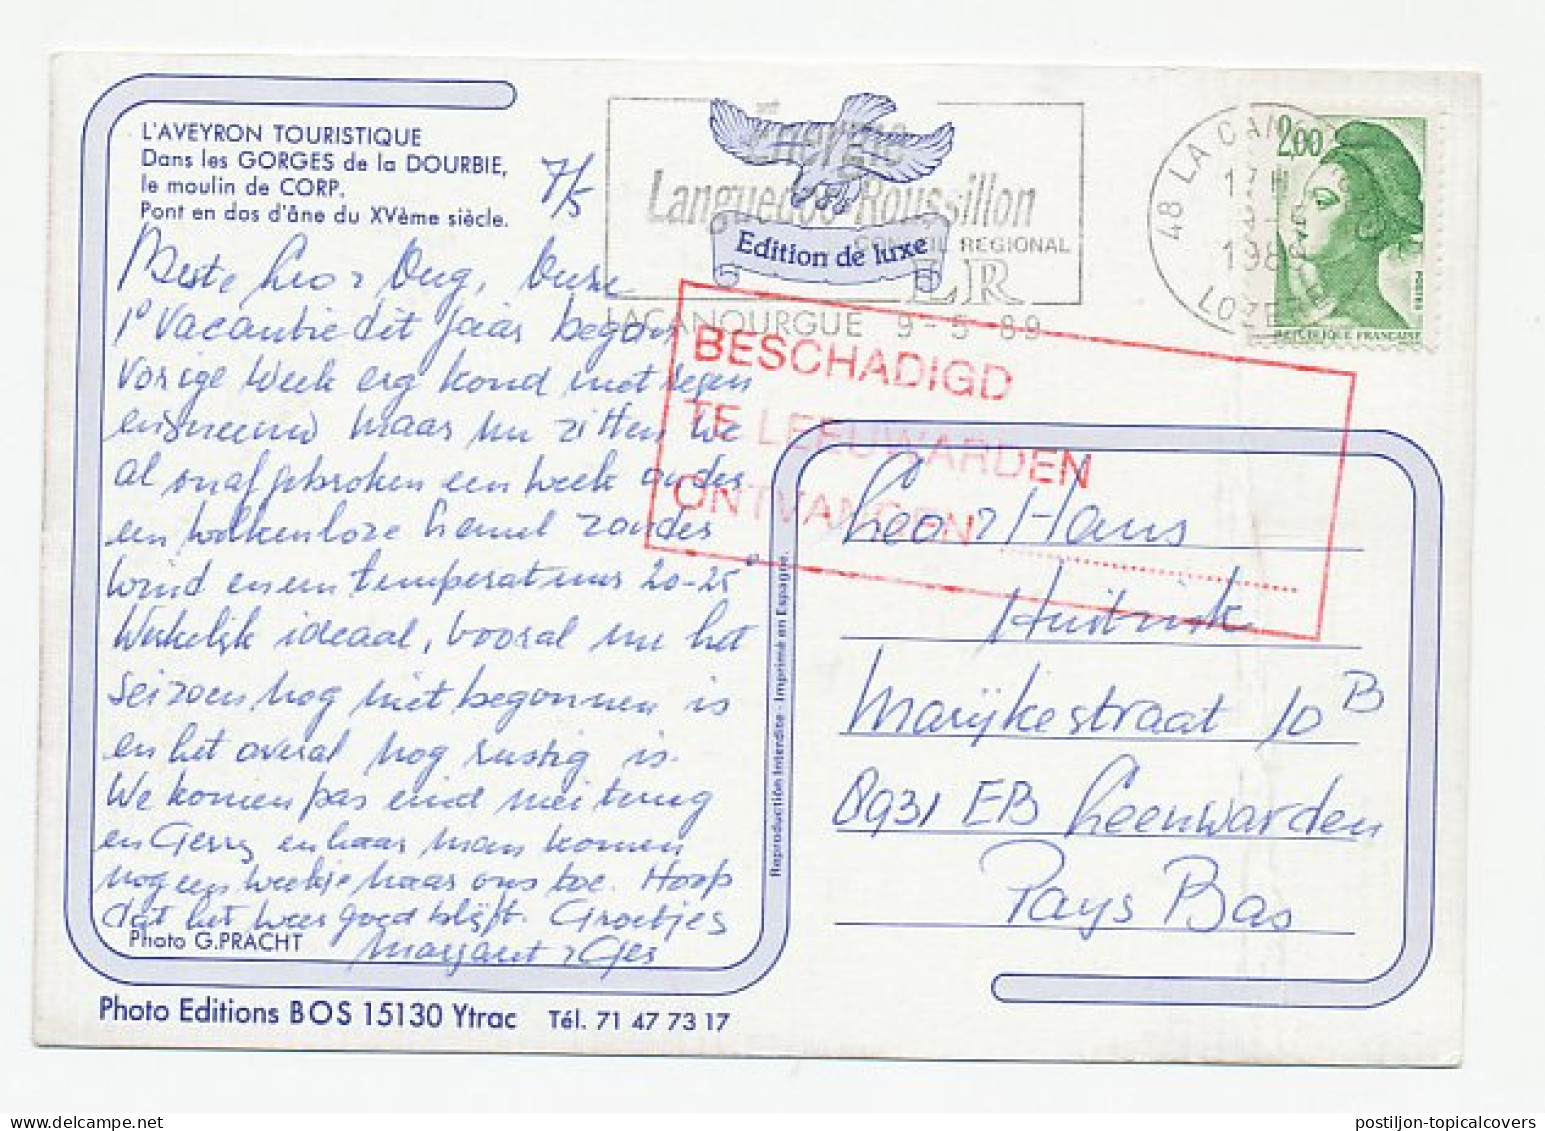 L'AVEYRON TOURISTIQUE
Dans les GORGES de la DOURBIE,
le moulin de CORP.
Pont en dos d'âne du XVème siècle.
7/5
Energie
Languedoc Roussillon
CONSEIL REGIONAL
LR
Edition de luxe
LACANOURGUE 9-5-89
48 LA CAN
17H
1989
LOZERE
2,00
POSTES
REPUBLIQUE FRANÇAISE
BESCHADIGD
TE LEEUWARDEN
ONTVANGEN
Beste Leo
1e Vacantie dit jaar begon
vorige week erg koud met regen
en sneeuw maar nu zitten we
al onafgebroken een week onder
een wolkenloze hemel zonder
wind en een temperatuur 20-25°
Werkelijk ideaal, vooral nu het
seizoen nog niet begonnen is
en het overal nog rustig is.
We komen pas eind mei terug
en Gerry en haar man komen
nog een weekje naar ons toe. Hoop
dat het weer goed blijft. Groetjes
Photo G.PRACHT
Ger
Reproduction Interdite - Imprimé en Espagne.
Leo Hans
Marijkestraat 10 B
8931 EB Leeuwarden
Pays Bas
Photo Editions BOS 15130 Ytrac Tél. 71 47 73 17
postiljon-topicalcovers